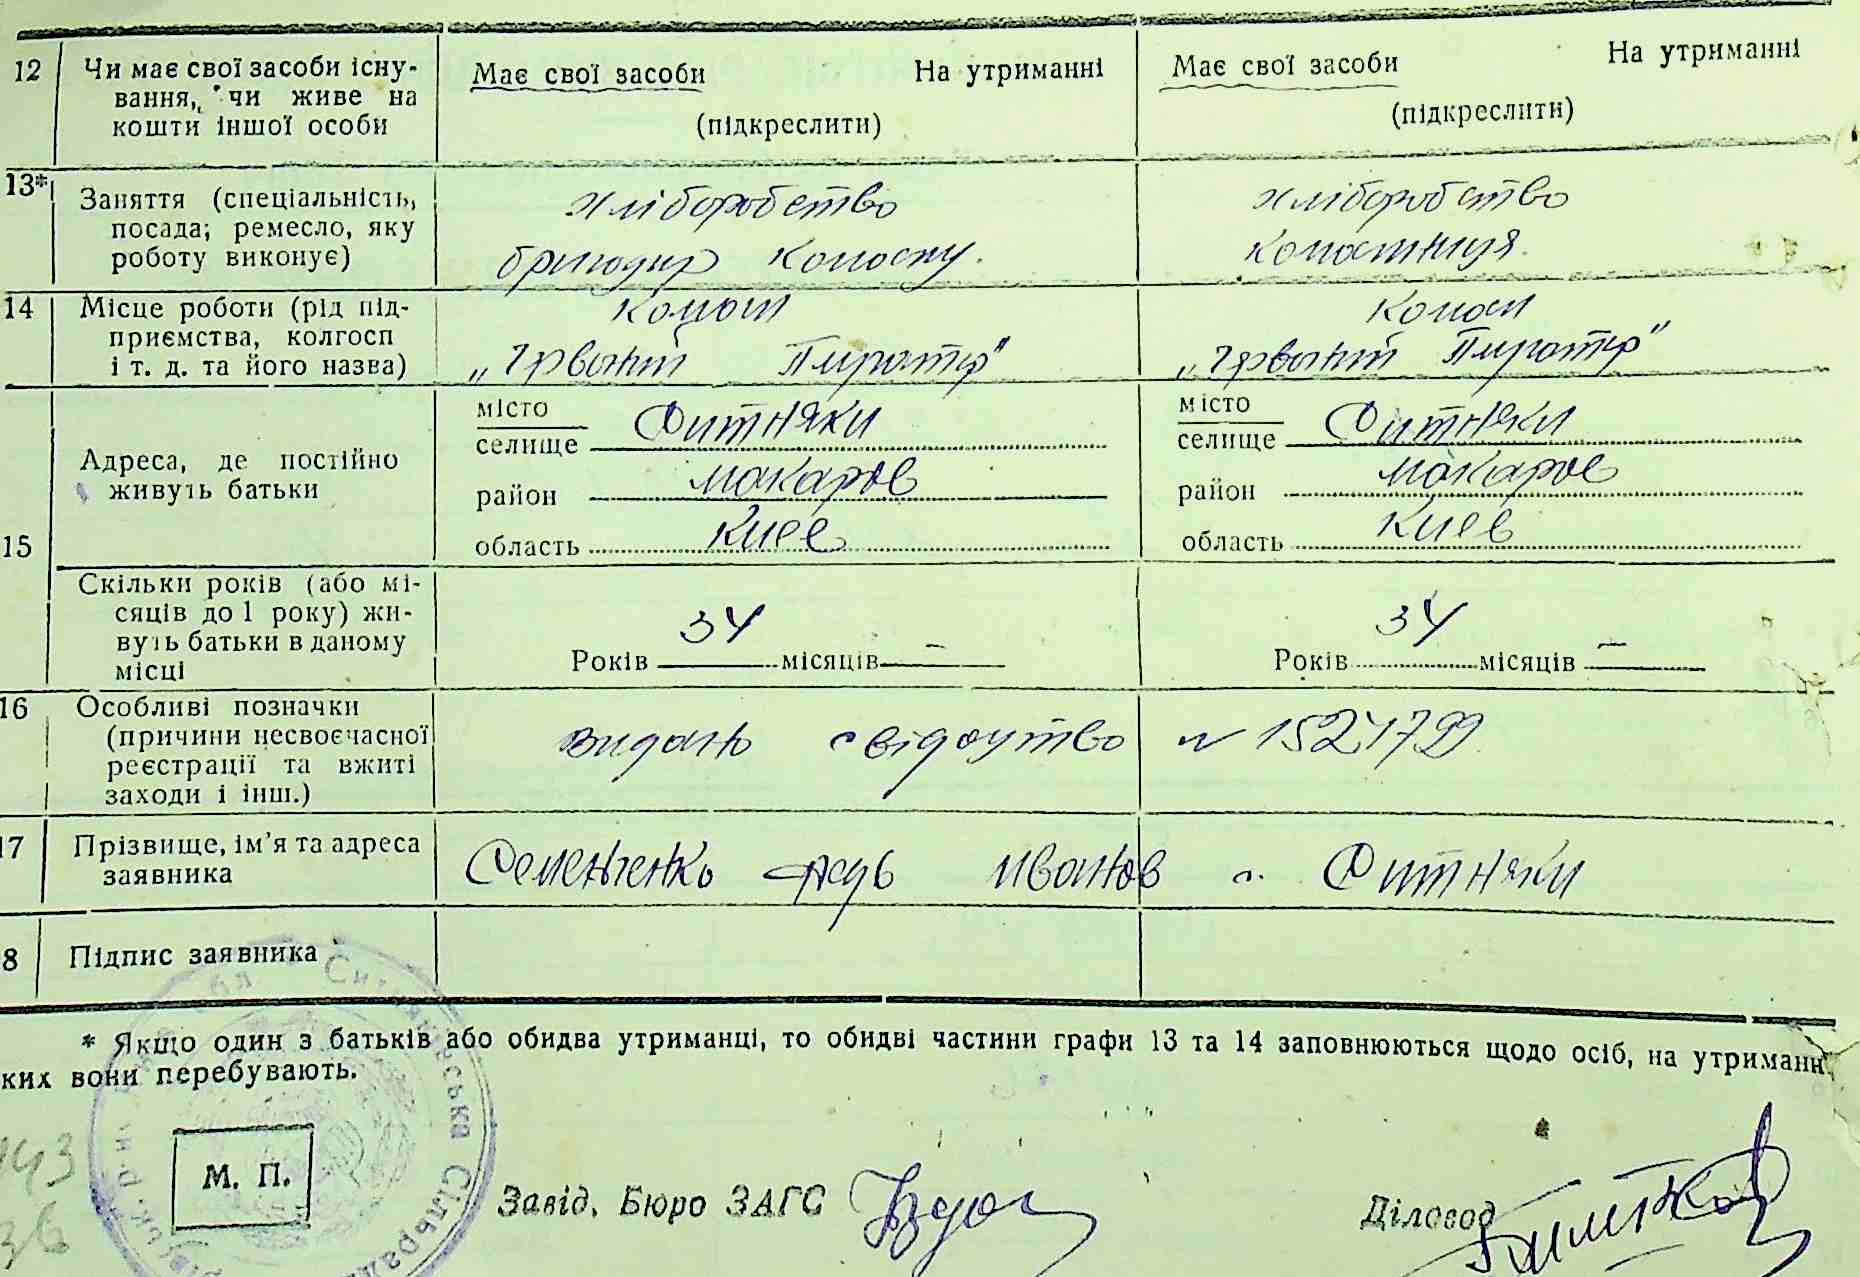 12 Чи має свої засоби існу-
вання, чи живе на
кошти іншої особи
Має свої засоби На утриманні
(підкреслити)
Має свої засоби На утриманні
(підкреслити)
13* Заняття (спеціальність,
посада; ремесло, яку
роботу виконує)
хліборобство
бригадир колгоспу.
хліборобство
14 Місце роботи (рід під-
приємства, колгосп
і т. д. та його назва)
"
"
15 Адреса, де постійно
живуть батьки
місто
селище Ситняки
район Макаров
область Киев
місто
селище Ситняки
район Макаров
область Киев
Скільки років (або мі-
сяців до 1 року) жи-
вуть батьки в даному
місці
Років 34 місяців —
Років 34 місяців —
16 Особливі позначки
(причини несвоєчасної
реєстрації та вжиті
заходи і інш.)
видано свідоцтво
17 Прізвище, ім'я та адреса
заявника
Семенченко Иванов с. Ситняки
8 Підпис заявника
* Якщо один з батьків або обидва утриманці, то обидві частини графи 13 та 14 заповнюються щодо осіб, на утриманн
ких вони перебувають.
М. П.
Завід. Бюро ЗАГС
Діловод
143
36
Сільрада